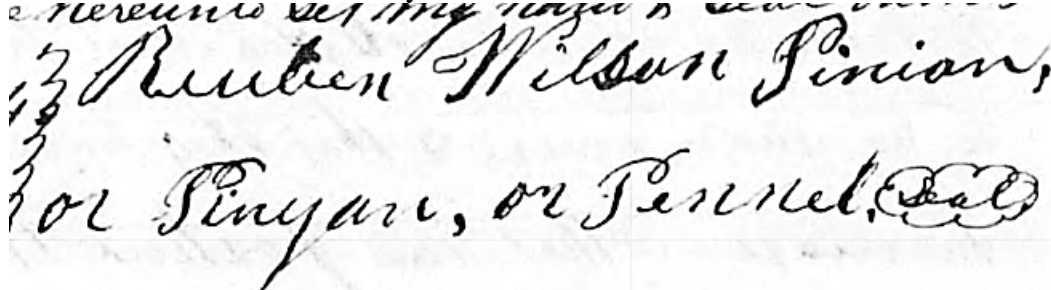 hereunto set my hand & seal
Reuben Wilson Pinion,
or Pinyan, or Pennel. Seal